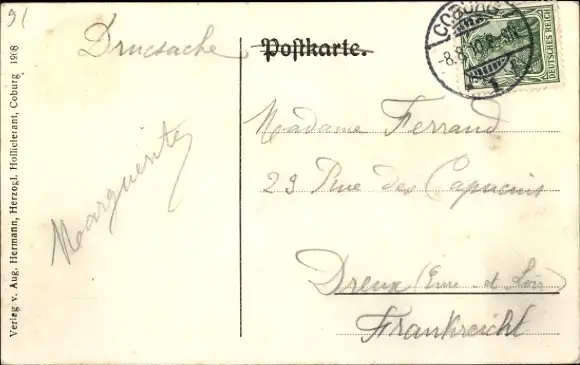 91
Drucsache
Postkarte.
COBURG 1
-8.8.10.
DEUTSCHES REICH
Madame Ferrand
23 Rue des Capucins
Dreux (Eure-et Loir)
Frankreich
Marguerite
Verlag v. Aug. Hermann, Herzogl. Hoflieferant, Coburg 1908